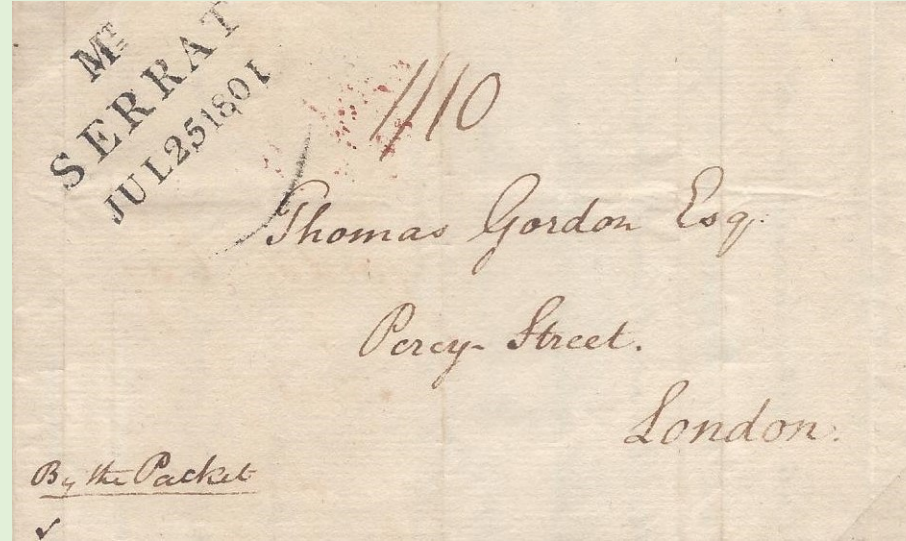 MT
SERRAT
JUL 25 1801
1/10
Thomas Gordon Esq.
Percy Street.
London.
By the Packet